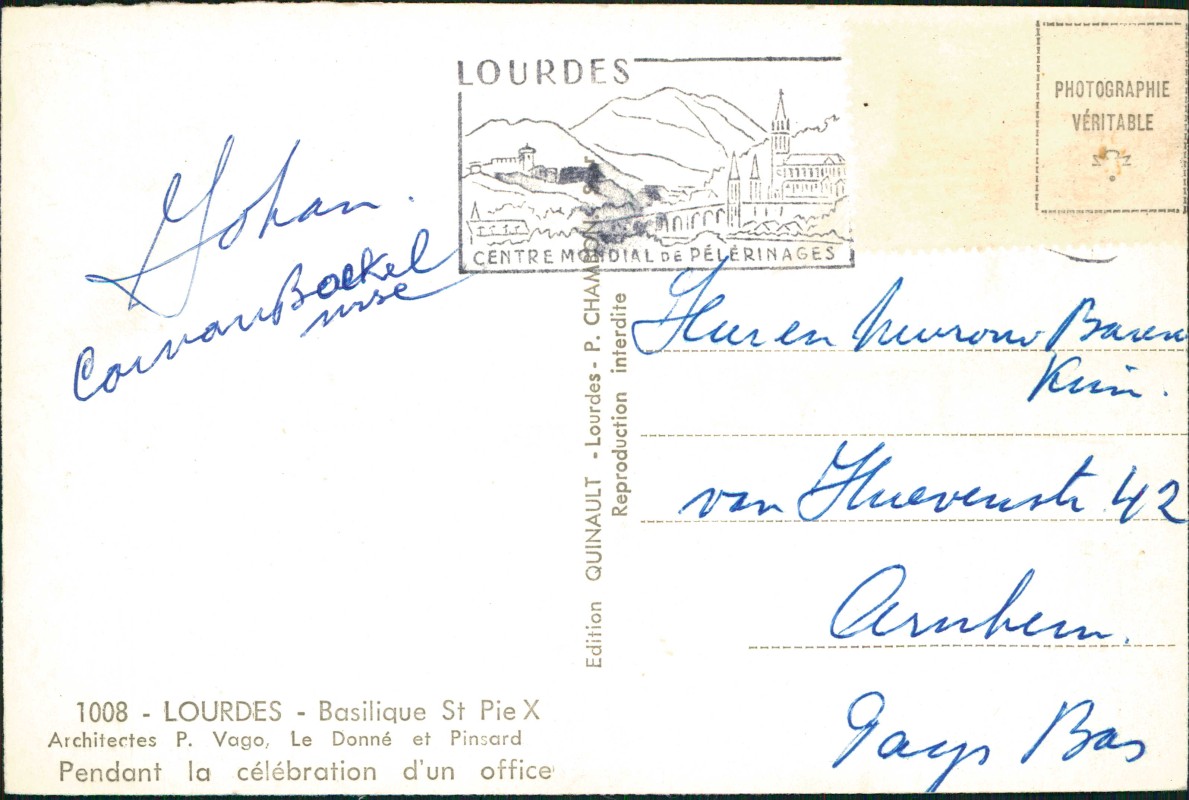 LOURDES
CENTRE MONDIAL DE PÉLÉRINAGES
PHOTOGRAPHIE
VÉRITABLE
Johan.
Cor van Boekel
Heer en Mevrouw Baren
van Heuvenstr 42
Arnhem.
Pays Bas
Edition QUINAULT - Lourdes - P. CHAMBON
Reproduction interdite
1008 - LOURDES - Basilique St Pie X
Architectes P. Vago, Le Donné et Pinsard
Pendant la célébration d'un office